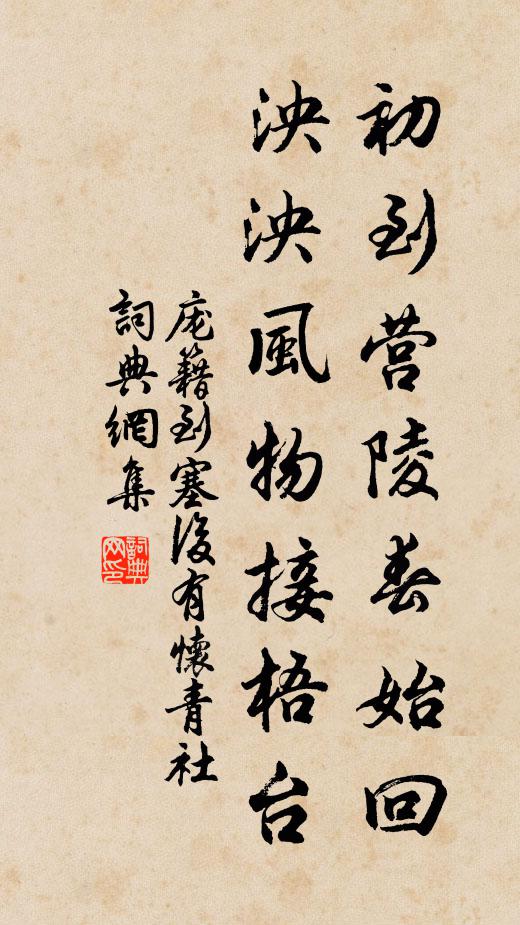 初到营陵春始回
泱泱風物接梧台
庞籍到塞後有懷青社
詞典網集
詞典网印